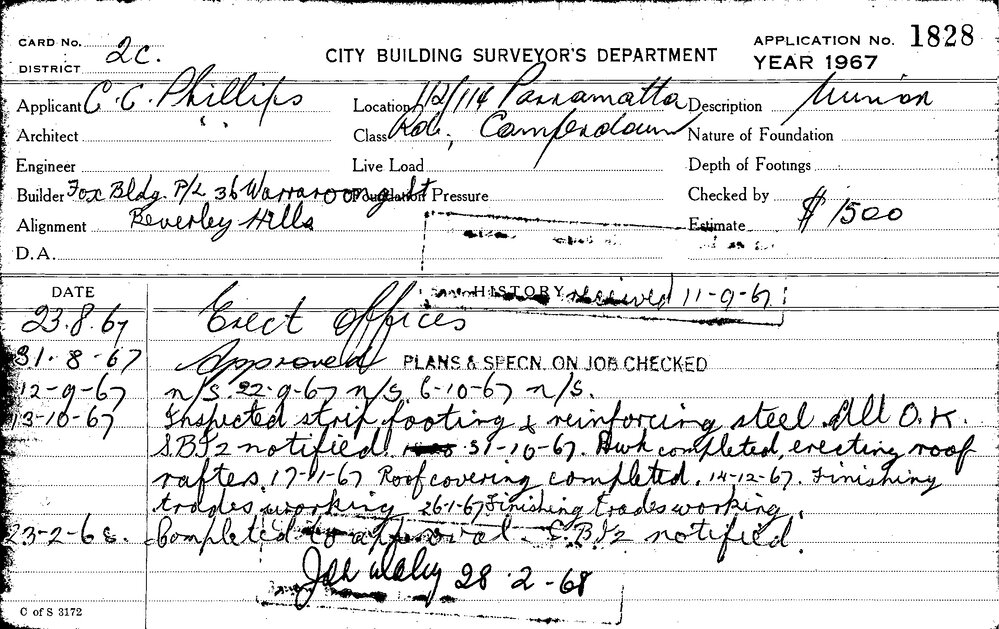 CARD No. 2c.
DISTRICT
CITY BUILDING SURVEYOR'S DEPARTMENT
APPLICATION No. 1828
YEAR 1967
Applicant C. C. Phillips
Location 112/114 Parramatta
Description Minion
Architect
Class Rd., Camperdown
Nature of Foundation
Engineer
Live Load
Depth of Footings
Builder Fox Bldg. P/L 36 Warraroong St
Foundation Pressure
Checked by
Alignment Beverley Hills
Estimate $1500
D.A.
DATE
HISTORY received 11-9-67
23.8.67 Erect Offices
31-8-67 Approved PLANS & SPECN. ON JOB CHECKED
12-9-67 n/s. 22-9-67 n/s. 6-10-67 n/s.
13-10-67 Inspected strip footing & reinforcing steel. All O.K.
S.B.I2 notified. 31-10-67. Bwk completed, erecting roof
rafters. 17-11-67 Roof covering completed. 14-12-67. Finishing
trades working 26-1-67 Finishing trades working.
23-2-68. Completed to approval. S.B.I2 notified.
28-2-68
C of S 3172